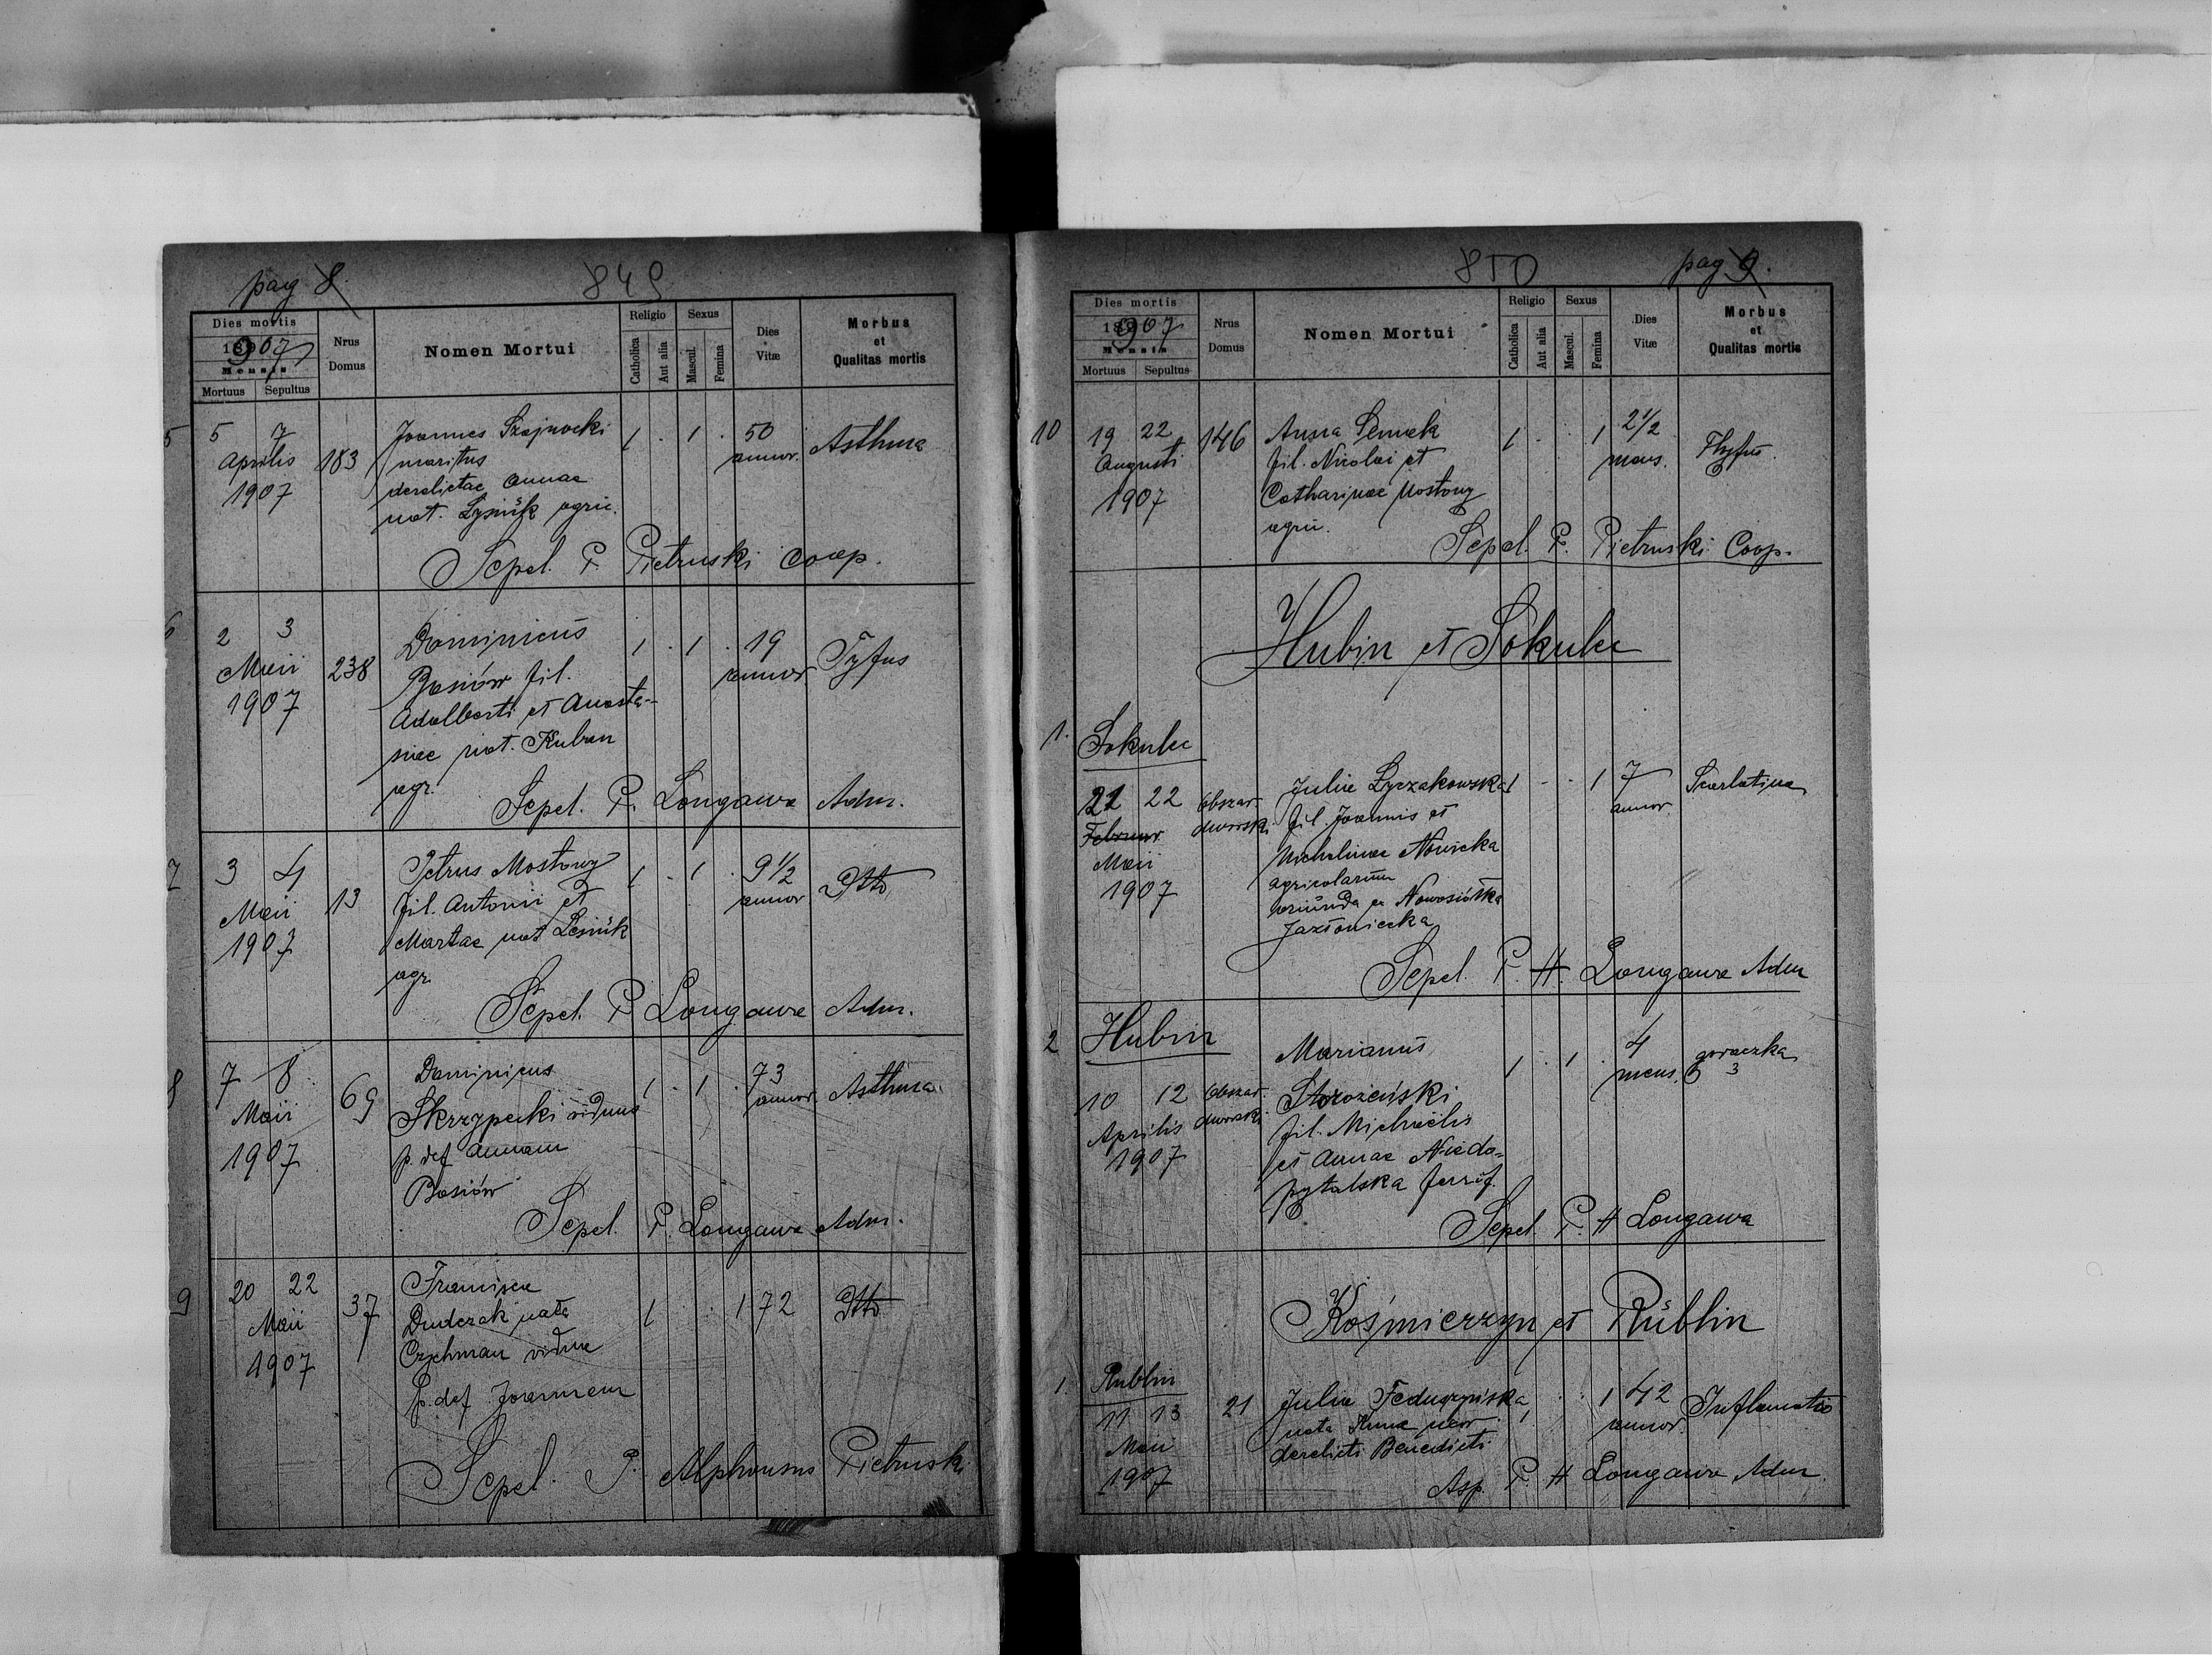 pag 8.
849
Dies mortis
1907
Mensis
Mortuus
Sepultus
Nrus
Domus
Nomen Mortui
Religio
Catholica
Aut alia
Sexus
Mascul.
Femina
Dies
Vitæ
Morbus
et
Qualitas mortis
5
5 7
Aprilis
1907
183
Joannes Szajnocki
maritus
derelictae Annae
nat. Lysiuk agric.
1 . 1 .
50
annor.
Asthma
Sepel. P. Pietruski Coop.
6
2 3
Maii
1907
238
Dominicus
Basiów fil.
Adalberti et Anasta-
siae nat. Kuban
agr.
1 . 1 .
19
annor.
Tyfus
Sepel. P. Longawa Adm.
7
3 4
Maii
1907
13
Petrus Mostowy
fil. Antonii et
Martae nat Lesiuk
agr.
1 . 1 .
9 1/2
annor
Dtto
Sepel. P Longawa Adm.
8
7 8
Maii
1907
69
Dominicus
Skrzypecki viduus
p. def Annam
Basiów
1 . 1 .
73
annor.
Asthma
Sepel. P. Longawa Adm.
9
20 22
Maii
1907
37
Francisca
Dudczak nata
Czychman vidua
p. def Joannem
1 . . 1
72
Dtto
Sepel. P. Alphonsus Pietruski
850
pag 9.
Dies mortis
1907
Mensis
Mortuus
Sepultus
Nrus
Domus
Nomen Mortui
Religio
Catholica
Aut alia
Sexus
Mascul.
Femina
Dies
Vitæ
Morbus
et
Qualitas mortis
10
19 22
Augusti
1907
146
Anna Semak
fil. Nicolai et
Catharinae Mostowy
agric.
1 . . 1
2 1/2
mens.
Thyfus.
Sepel. P. Pietruski Coop.
Hubin et Sokulec
1.
Sokulec
21 22
Februar
Maii
1907
Obszar
dworski
Julia Łyczakowska
fil. Joannis et
Michalinae Nowicka
agricolarum
oriunda ex Nowosiółka
Jazłowiecka
1 - - 1
7
annor.
Scarlatina
Sepel. P. H. Longawa Adm
2
Hubin
10 12
Aprilis
1907
Obszar
dworski
Marianus
Storożeński
fil. Michaëlis
et Annae Niedo-
pytalska
1 . 1 .
4
mens.
goraczka
Sepel. P. H Longawa
Kośmierzyn et Rublin
1.
Rublin
11 13
Maii
1907
21
Julia Feduszyńska
nata
derelicti Benedicti
1 . . 1
42
annor.
Inflamatio
Asp. P. H Longawa Adm.